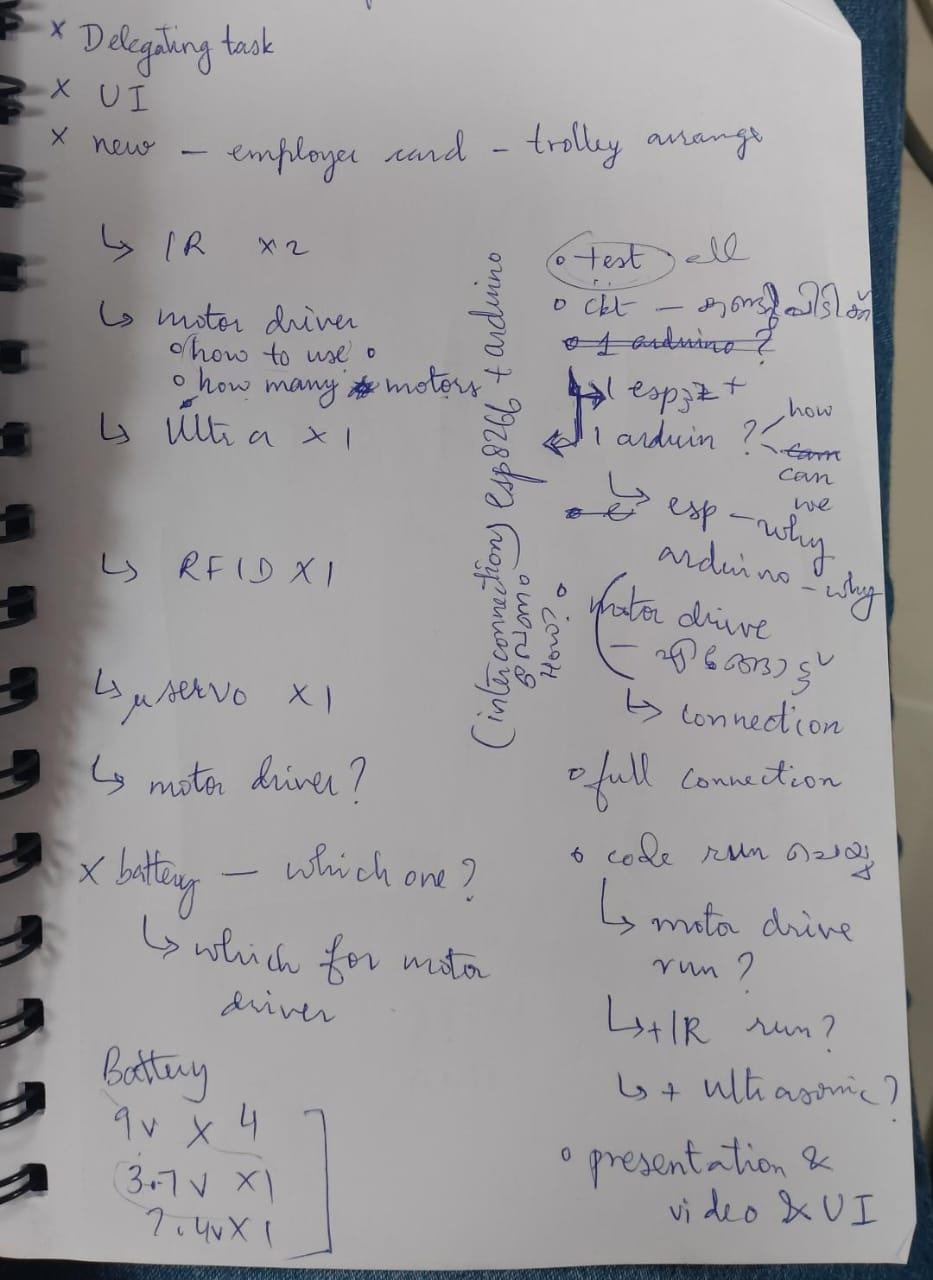 x Delegating task
x UI
x new – employee card – trolley arrange
↳ IR x2
↳ motor driver
o how to use o
o how many motors
↳ Ultra x 1
↳ RFID x1
↳ μ servo x1
↳ motor driver?
x battery – which one?
↳ which for motor
driver
Battery
9v x 4
3.7v x1
7.4v x 1
(interconnections esp8266 + arduino
How?
o test all
o ckt –
o 1 arduino ?
→ 1 esp32 +
1 arduin ?
how
can
can
we
↳ esp – why
arduino – why
o motor drive
↳ connection
o full connection
o code run
↳ motor drive
run?
↳ + IR run?
↳ + ultrasonic?
o presentation &
video & UI